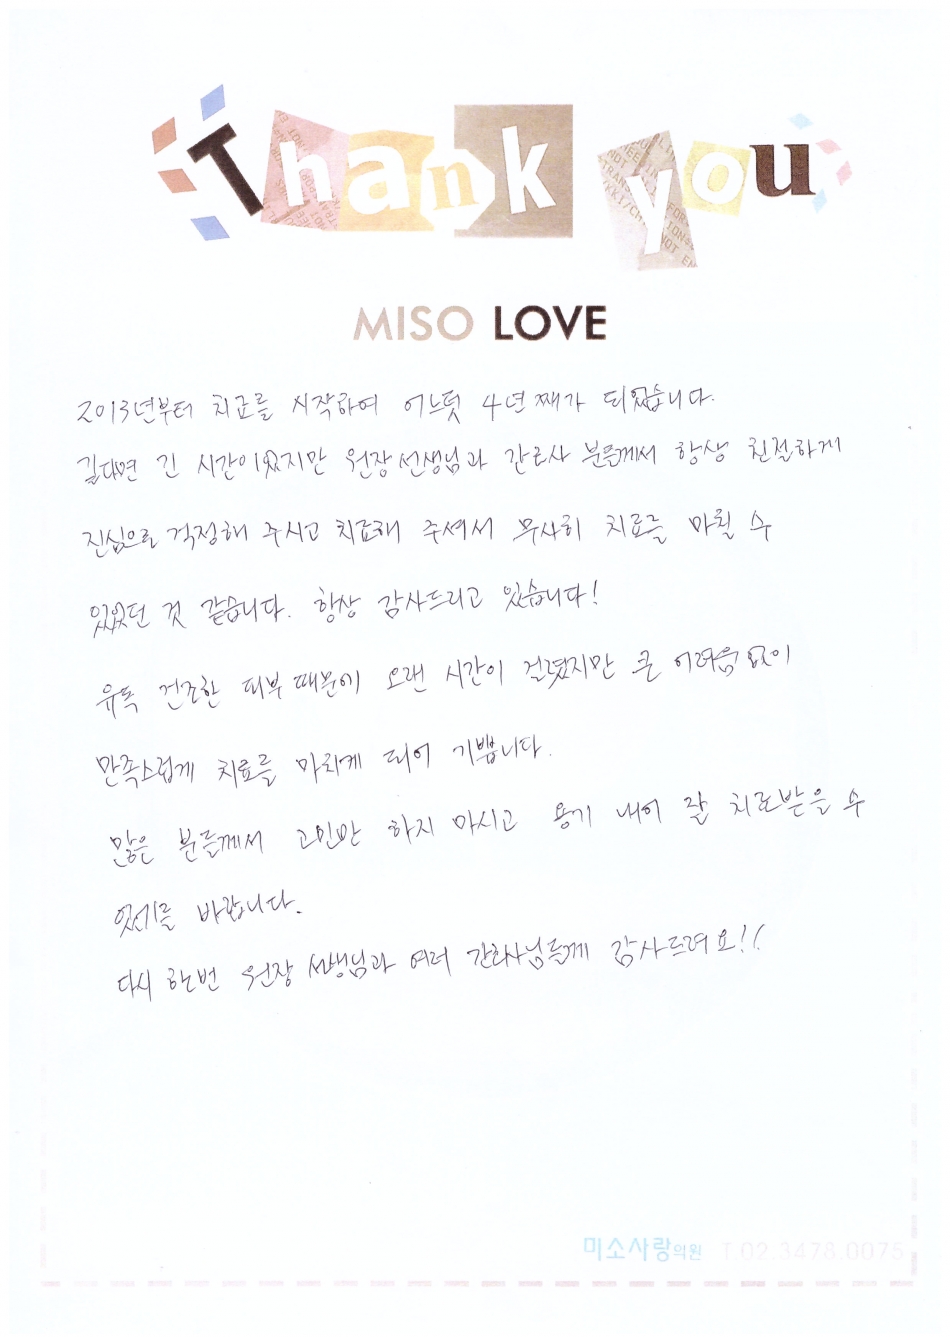 Thank you
MISO LOVE
2013년부터 치료를 시작하여 어느덧 4년째가 되었습니다.
길다면 긴 시간이었지만 원장선생님과 간호사 분들께서 항상 친절하게
진심으로 걱정해 주시고 치료해 주셔서 무사히 치료를 마칠 수
있었던 것 같습니다. 항상 감사드리고 있습니다!
유독 건조한 피부 때문에 오랜 시간이 걸렸지만 큰 어려움 없이
만족스럽게 치료를 마치게 되어 기쁩니다.
많은 분들께서 고민만 하지 마시고 용기 내어 잘 치료받을 수
있기를 바랍니다.
다시 한번 원장 선생님과 여러 간호사님들께 감사드려요!!
미소사랑의원 T.02.3478.0075